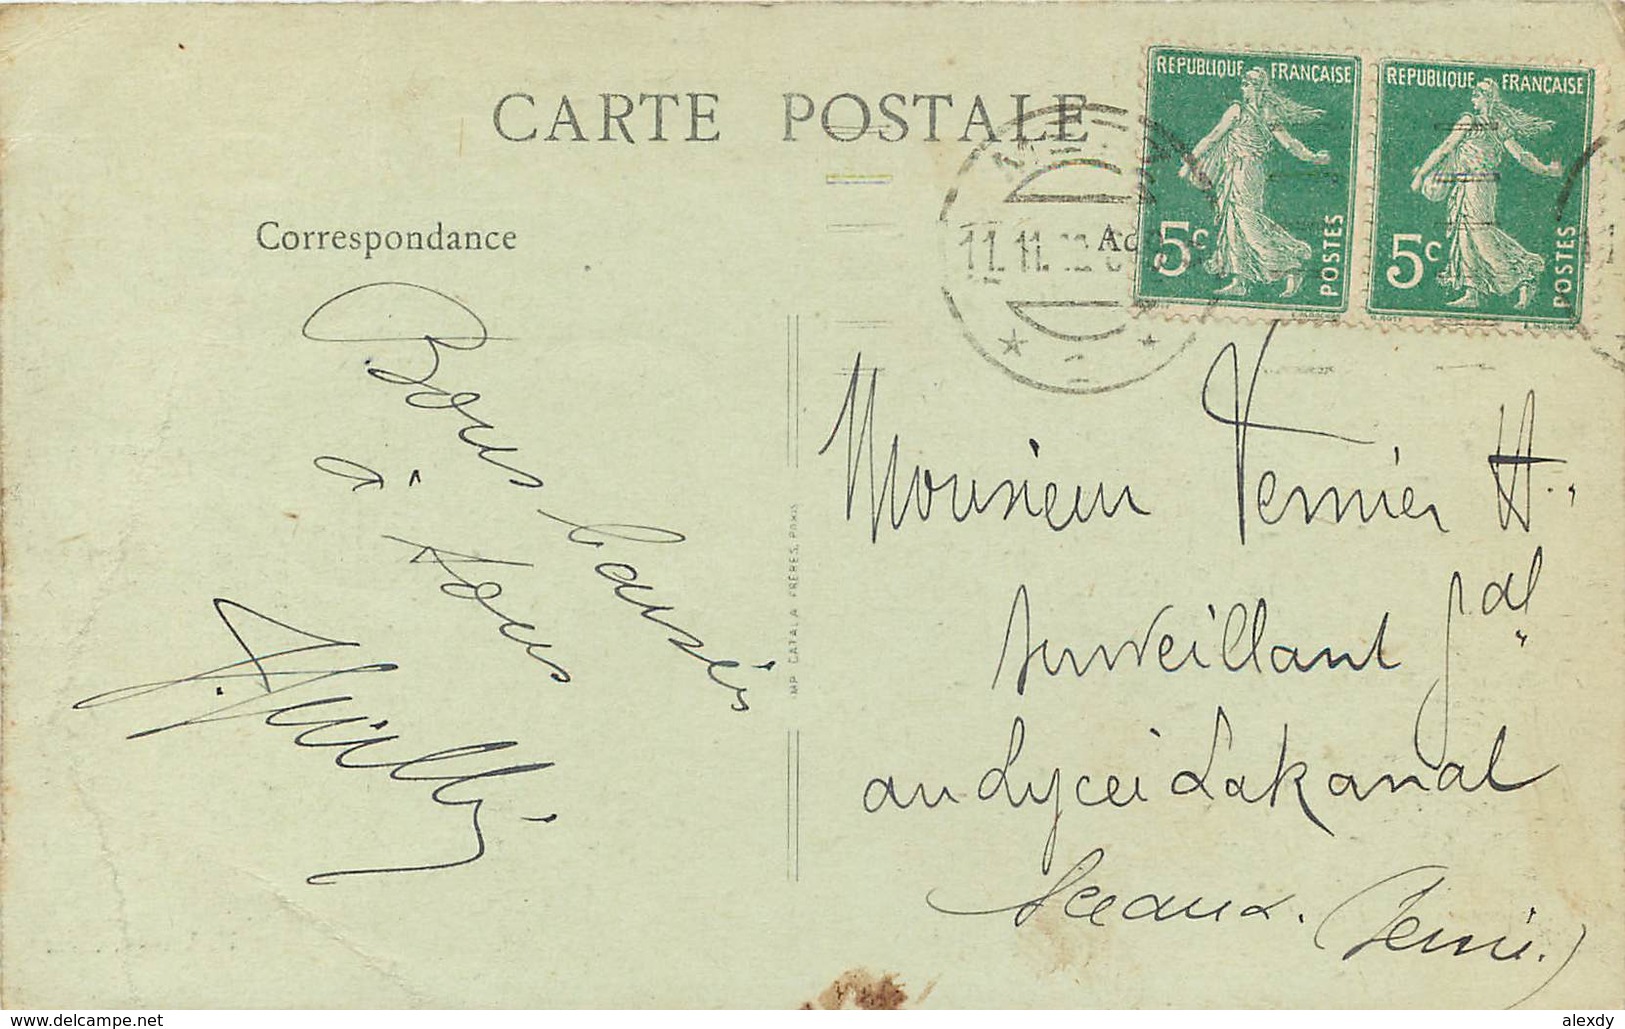 CARTE POSTALE
REPUBLIQUE FRANÇAISE
5c
POSTES
REPUBLIQUE FRANÇAISE
5c
POSTES
11.11.
Correspondance
Ad
Bons baisers
à tous
IMP. CATALA FRÈRES, PARIS
Monsieur H.
Surveillant gal
au Lycée Lakanal
Sceaux. (Seine.)
delcampe.net
alexdy